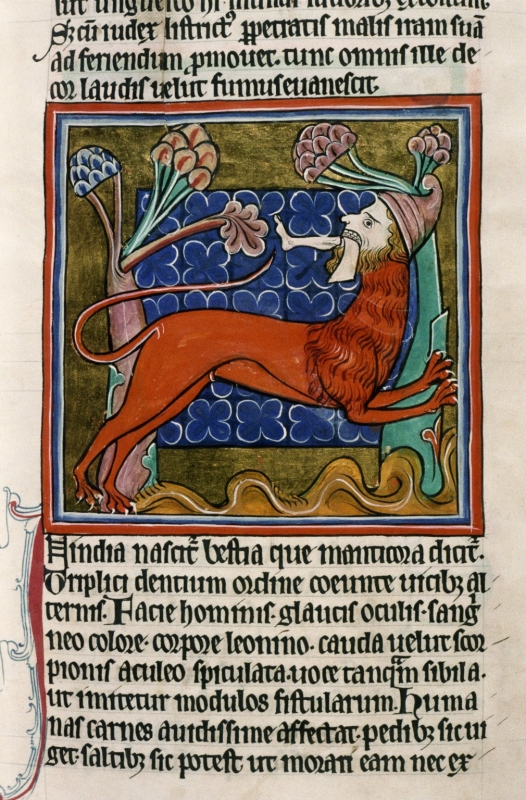 Scū iudex listrict᷒ ꝑpetratis malis iram suā
ad feriendum ꝓmouet. tunc omnis ille de
cor laudis uelut fumus euanescit.
Nindia nascit᷑ bestia que manticora dicit᷑.
Triplici dentium ordine coeunte uicibꝫ al
ternis. Facie hominis. glaucis oculis. sang
neo colore. corpore leonino. cauda uelut scor
pionis aculeo spiculata. uoce tanqᷓm sibila.
ut imitetur modulos fistularum. Huma
nas carnes auidissime affectat. pedibꝫ sic ui
get. saltibꝫ sic potest ut morari eam nec ex